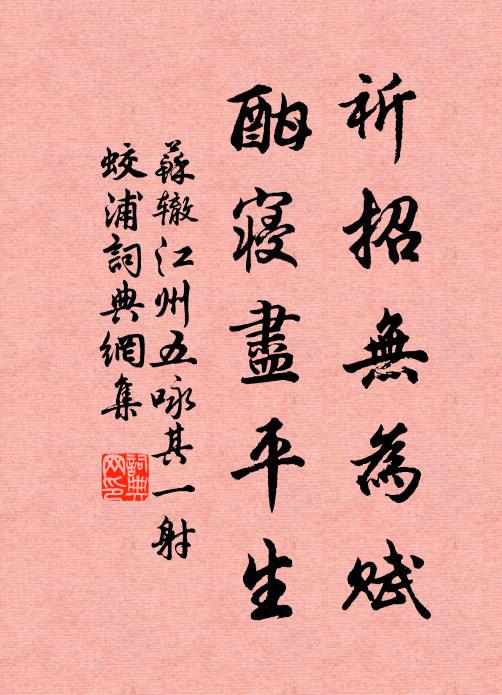 祈招無為賦
酣寢盡平生
蘇辙江州五咏其一射
蛟浦詞典網集
詞典网印